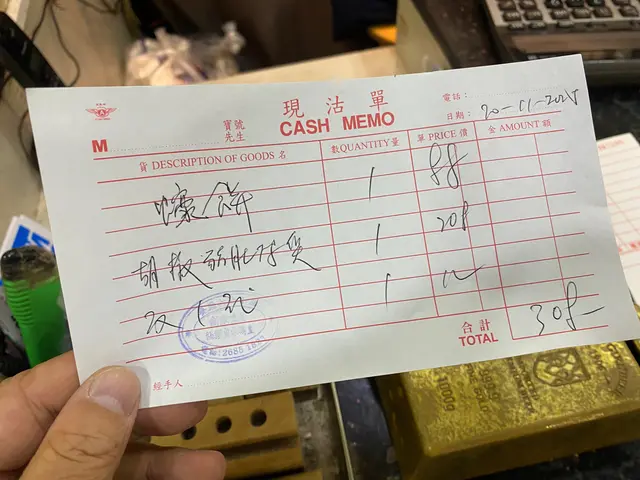 現沽單
CASH MEMO
電話：
日期：20-11-2025
M 寶號 先生
貨 DESCRIPTION OF GOODS 名 數QUANTITY量 單 PRICE 價 金 AMOUNT 額
蠔餅 1 88
胡椒 1 208
1 12
合計
TOTAL 308-
經手人
2685